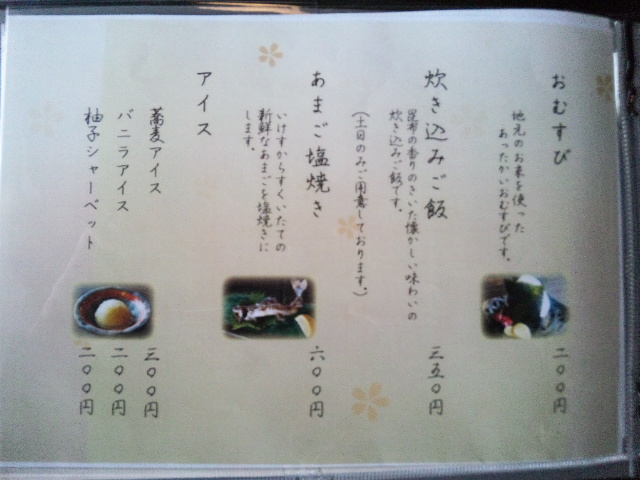 おむすび
地元のお米を使った
あったかいおむすびです。
二〇〇円
炊き込みご飯
昆布の香りのきいた懐かしい味わいの
炊き込みご飯です。
(土日のみご用意しております。)
三五〇円
あまご塩焼き
いけすからすくいたての
新鮮なあまごを塩焼きに
します。
六〇〇円
アイス
蕎麦アイス
三〇〇円
バニラアイス
二〇〇円
柚子シャーベット
二〇〇円